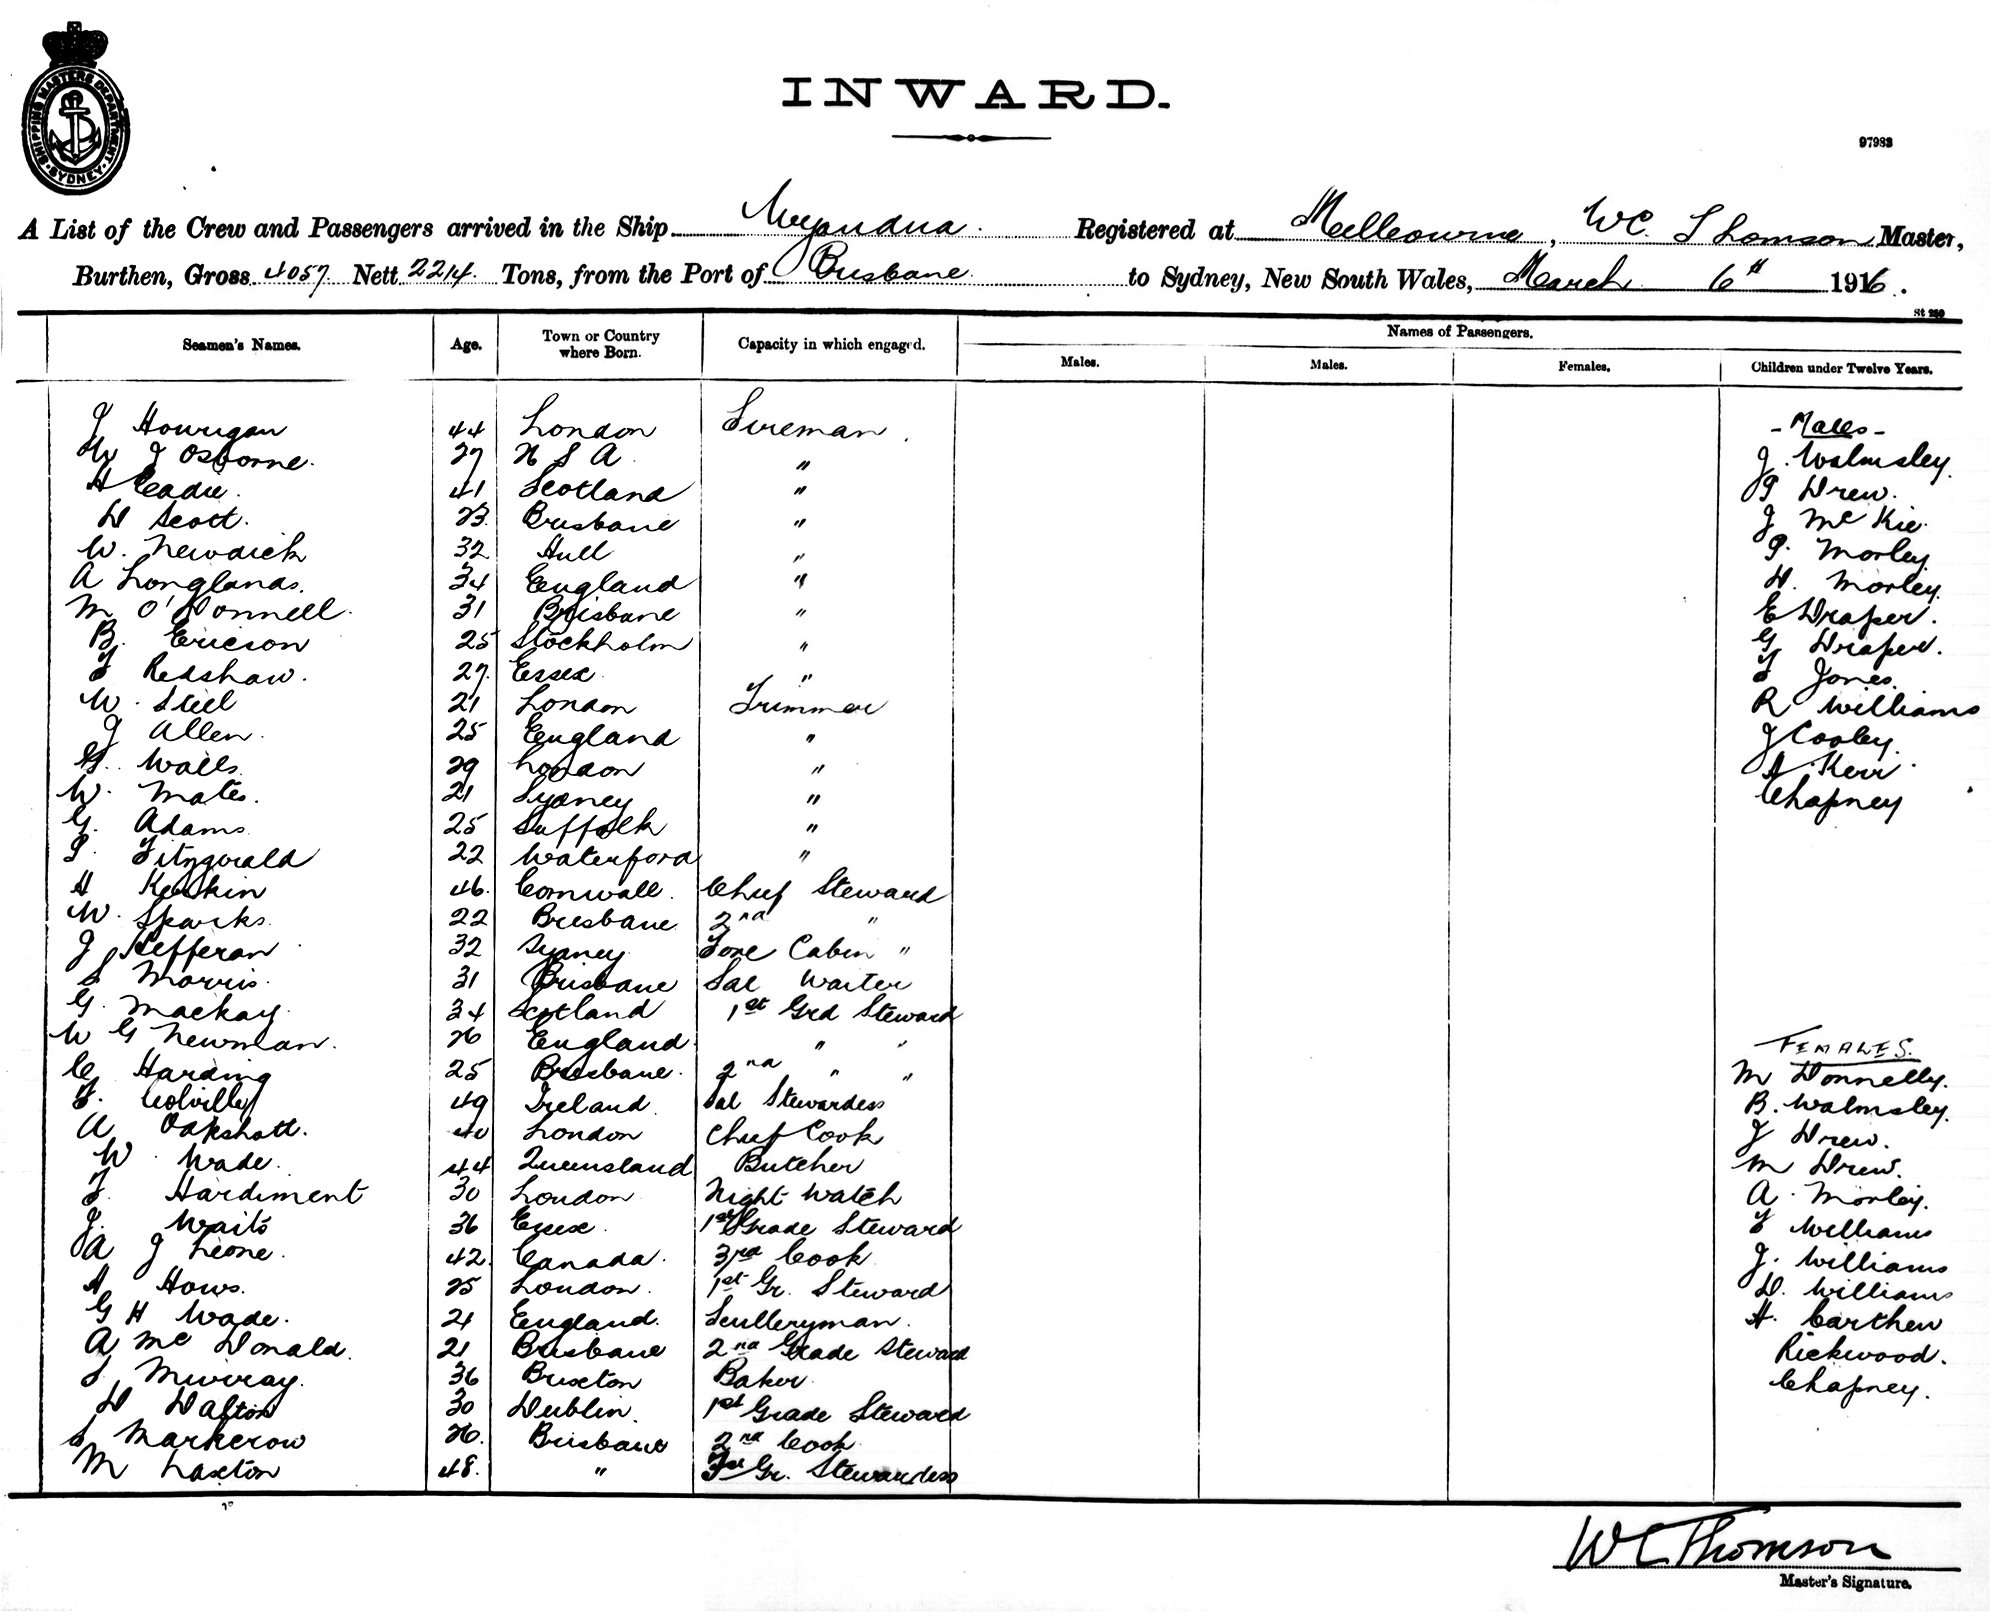 SHIPPING MASTERS DEPARTMENT SYDNEY
INWARD.
97983
A List of the Crew and Passengers arrived in the Ship Wyandra. Registered at Melbourne, WC. Thomson Master,
Burthen, Gross 4057 Nett 2214 Tons, from the Port of Brisbane to Sydney, New South Wales, March 6th 1916.
St 280
Seamen's Names. Age. Town or Country where Born. Capacity in which engaged. Names of Passengers.
Males. Males. Females. Children under Twelve Years.
J Hourigan 44 London Fireman. - Males -
J Osborne. 27 U S A " J. Walmsley.
H Eadie. 41 Scotland " P Drew.
D Scott. 23. Brisbane " J Mc Kie.
W. Newdick 32 Hull " P. Morley
A Longlands. 34 England " D. Morley.
M O'Donnell. 31 Brisbane " E Draper.
B. Ericson 25 Stockholm " G Draper.
F Redshaw. 27. Essex " F Jones.
W. Steel 21 London Trimmer R Williams
J Allen. 25 England " J Cooley.
Walls. 29 London " A. Kerr.
W. Mates. 21 Sydney " Chapney
G. Adams. 25 Suffolk "
P. Fitzgerald 22 Waterford "
H Keskin 46. Cornwall. Chief Steward
W. Sparks. 22 Brisbane 2nd "
J Hefferan 32 Sydney Fore Cabin "
S Morris. 31 Brisbane Sal Waiter
G. Mackay. 34 Scotland 1st Grd Steward
W G Newman. 26 England " " FEMALES.
C Harding 25 Brisbane. 2nd " " M Donnelly.
F. Colville 49 Ireland. Sal Stewardess B. Walmsley.
A Oakshott. 40 London Chief Cook J Drew.
W. Wade. 44 Queensland Butcher M Drew.
F. Hardiment 30 London Night Watch A. Morley.
J. Waits 36 Essex. 1st Grade Steward F Williams
A J Leone. 42. Canada. 3rd Cook J. Williams
H Hows. 25 London. 1st Gr. Steward D. Williams
G H Wade. 21 England. Sculleryman. H. Carthew
A Mc Donald. 21 Brisbane 2nd Grade Steward Rickwood.
S Murray. 36 Brixton Baker. Chapney.
D Dalton 30 Dublin. 1st Grade Steward
S Markerow 26. Brisbane 2nd Cook
M Laxton 48. " Gr. Stewardess
WC Thomson
Master's Signature.